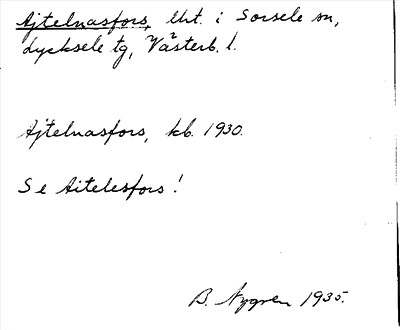 Ajtelnasfors, lht. i Sorsele sn,
Lycksele tg, Västerb. l.
Ajtelnasfors, kb. 1930.
Se Aitelesfors!
B. Nygren 1935.